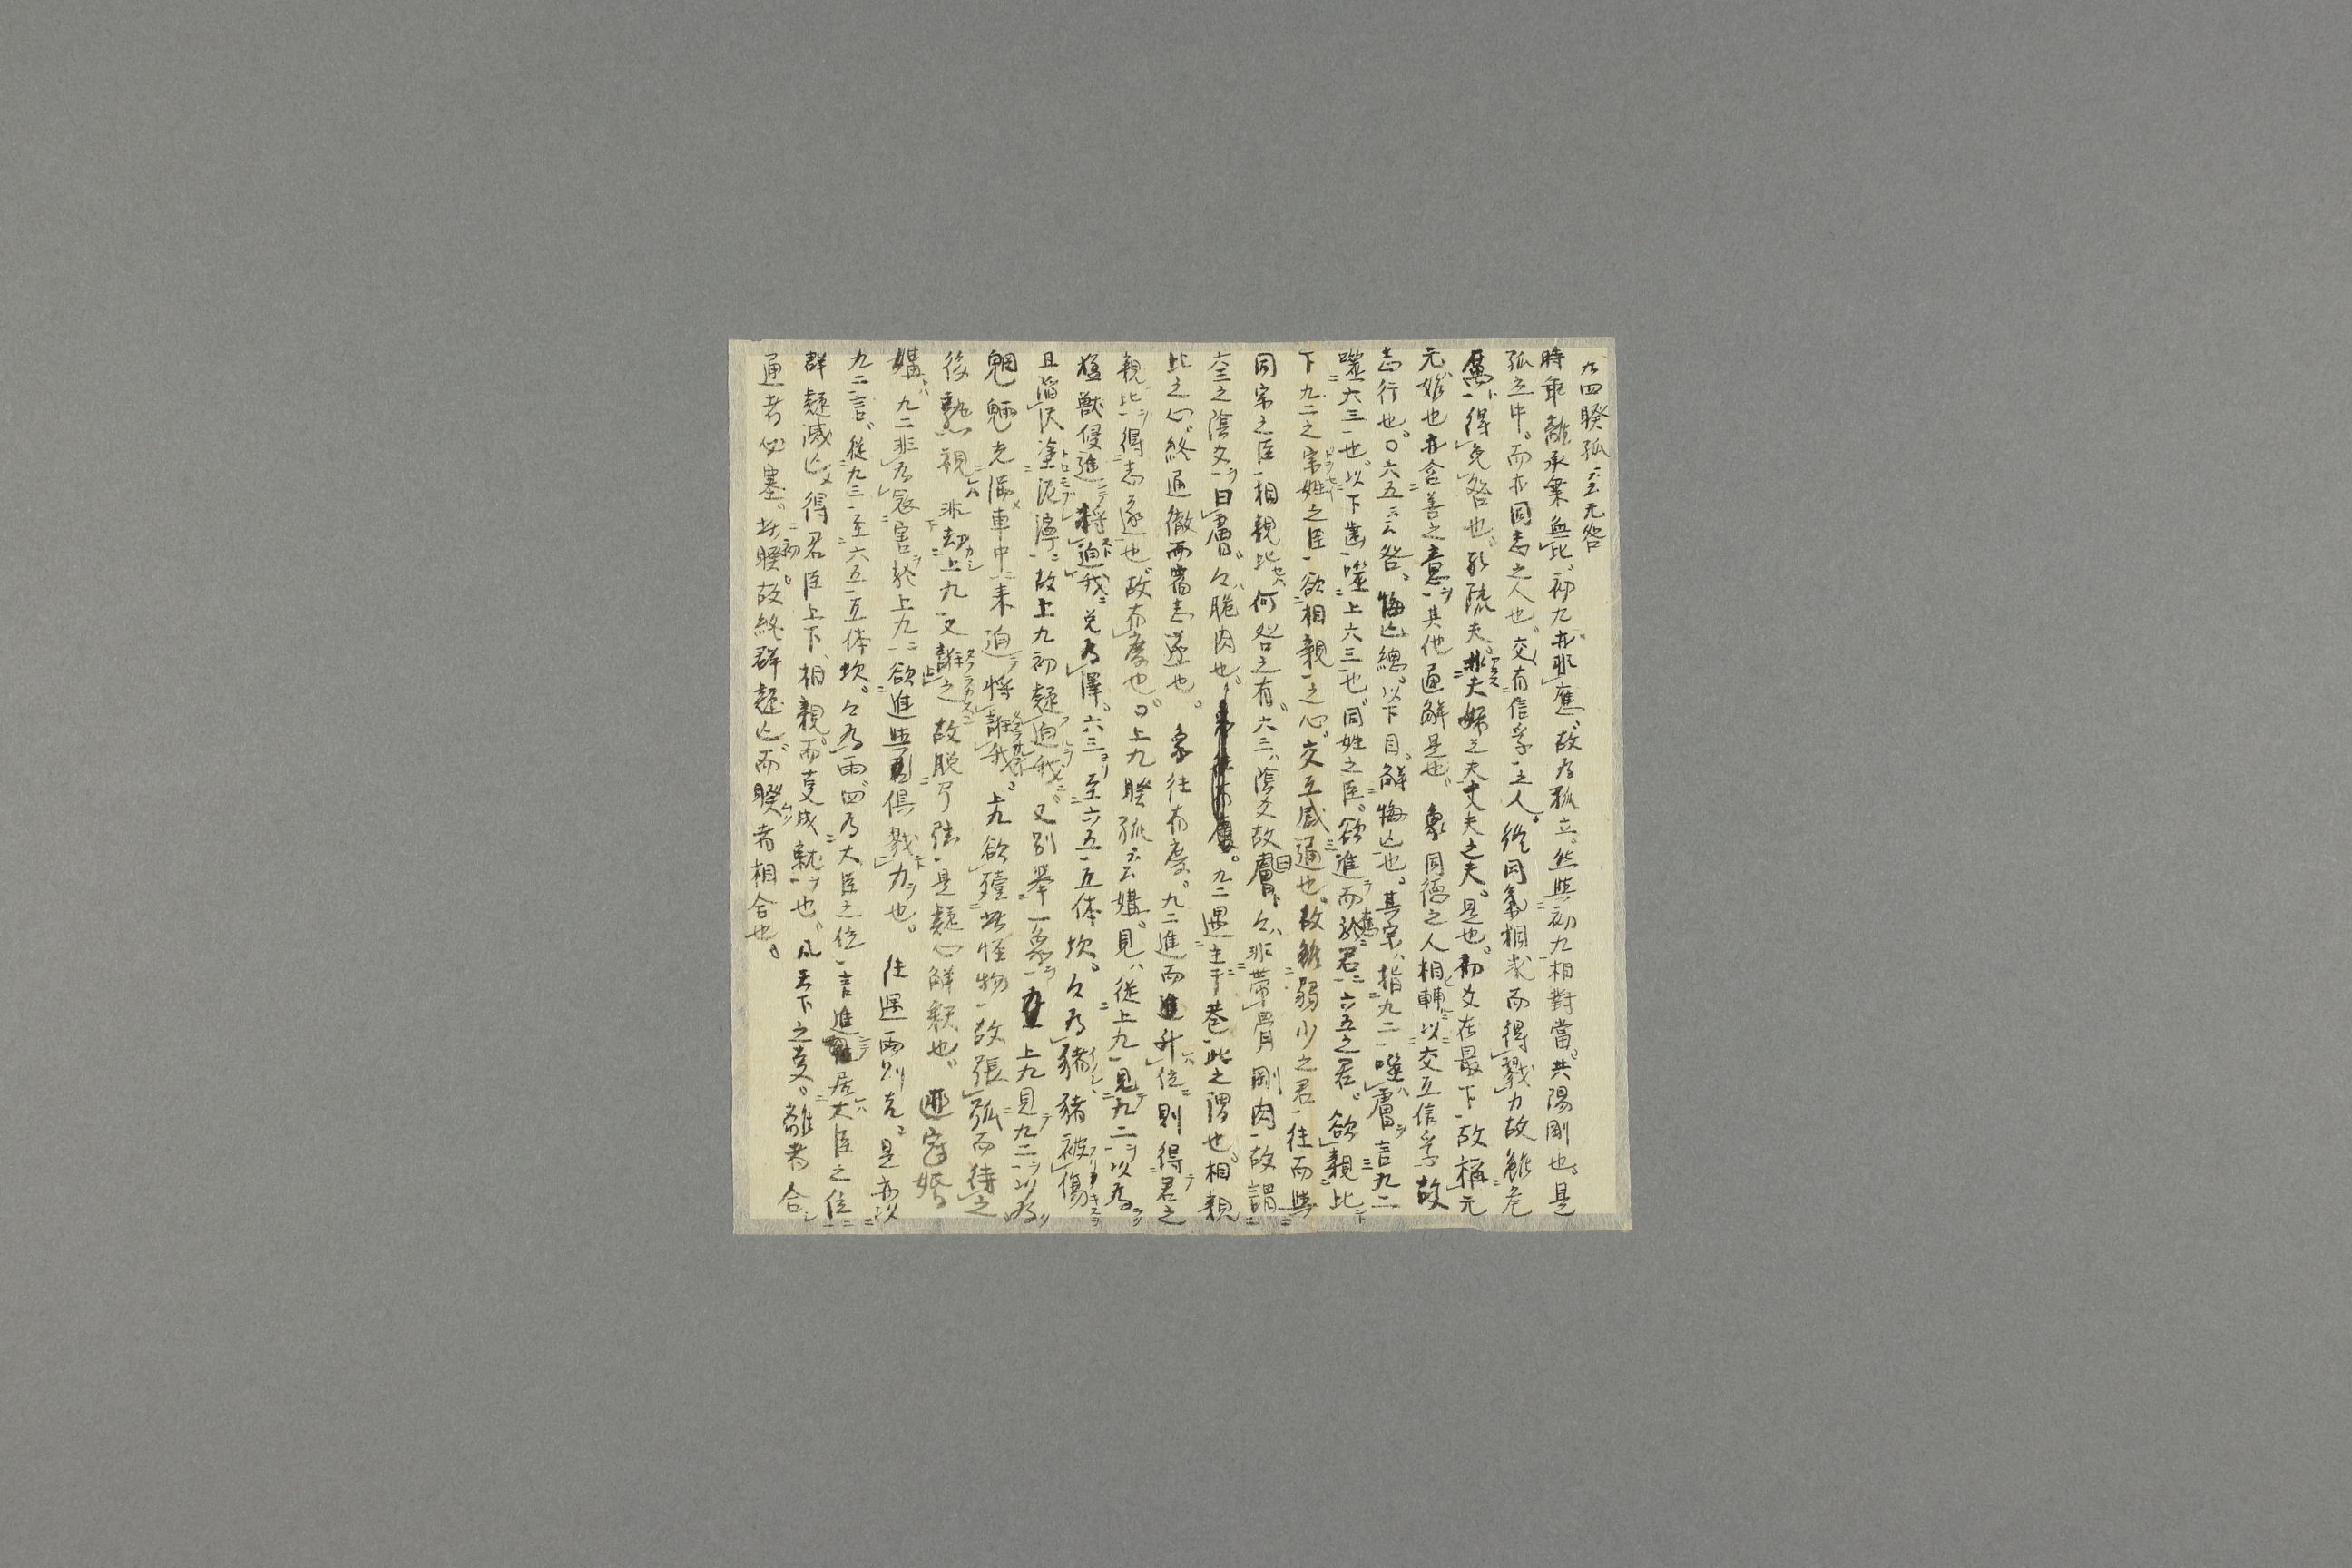 九四睽孤云云无咎
時乖離承乘無比。初九亦非應。故為孤立。然與初九相對當。共陽剛也。是
孤立中。而亦同志之人也。交有信孚之人。終同氣相求而得戮力故雖危
厲得免咎也。元夫。非夫婦之夫丈夫之夫。是也。初爻在最下故稱元
元始也亦含善之意其他通解是也。 象同德之人相輔以交互信孚故
志行也。〇六五云云咎。悔亡總。以下目。解悔亡也。其宗指九二噬膚言九二
噬六三也。以下齒噬上六三也。同姓之臣。欲進而應君六五之君。欲親比
下九二之宗姓之臣欲相親之心。交互感通也。故雖弱少之君往而與
同宗之臣相親比何咎之有。六三陰爻故曰膚。々非帶骨剛肉故謂
六三之陰爻曰膚。々脆肉也。九二遇主于巷此之謂也。相親
比之心。終通徹而當志遂也。 象往有慶。九二進而升位則得君之
親比得志遂也。故有慶也。〇上九睽孤云云媾。見從上九見九二以為
猛獸侵進將迫我。兌為澤。六三至六五互体坎。々為豬豬被傷
且陷伏塗泥濘故上九初疑迫我。又別舉一象上九見九二以為
魍魎充滿車中来迫將誑我。上九欲殪此怪物故張弧而待之
後熟視非劫上九又誑之故脫了弦是疑心解釈也。 匪寇婚
媾九二非為寇害於上九欲進與俱戮力也。 往遇雨則吉。是亦以
九二言。從九三至六五互体坎。々為雨。四為大臣之位言進居大臣之位
群疑滅亡。得君臣上下相親。而支成就也。凡天下之支。離者合
通者必塞。此睽故終群疑亡。而睽者相合也。